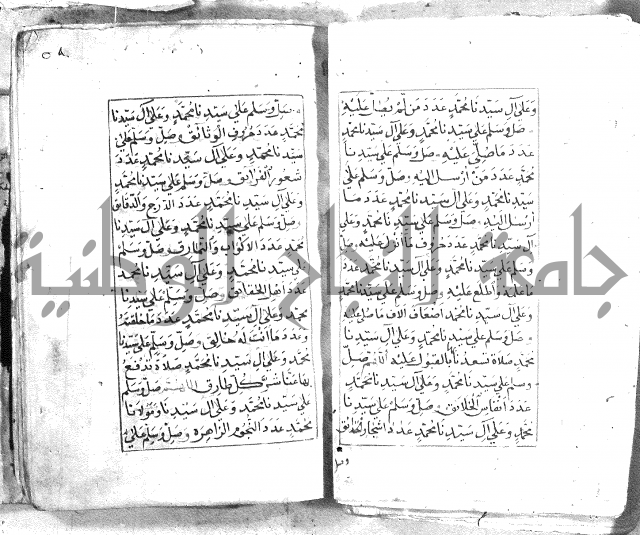 وعلى آل سيدنا محمد عدد من لم يصل عليه
وصل وسلم على سيدنا محمد وعلى آل سيدنا محمد
عدد ما صلي عليه وصل وسلم على سيدنا
محمد عدد من أرسل إليه وصل وسلم على
سيدنا محمد وعلى آل سيدنا محمد عدد ما
أرسل إليه وصل وسلم على سيدنا محمد وعلى
آل سيدنا محمد عدد حروف ما أنزل عليه وصل
وسلم على سيدنا محمد وعلى آل سيدنا محمد عدد
عليه وصل وسلم على سيدنا محمد
وعلى آل سيدنا محمد أضعاف آلاف ما صلي عليه
وصل وسلم على سيدنا محمد وعلى آل سيدنا
محمد صلاة تسعدنا بالقبول عليه اللهم صل
وسلم على سيدنا محمد وعلى آل سيدنا محمد
عدد أنفاس الخلائق وصل وسلم على سيدنا
محمد وعلى آل سيدنا محمد عدد أشجار الحدائق
وصل
٥٨
وصل وسلم على سيدنا محمد وعلى آل سيدنا
محمد عدد حروف الوثائق وصل وسلم على
سيدنا محمد وعلى آل سيدنا محمد عدد
شعور وصل وسلم على سيدنا محمد
وعلى آل سيدنا محمد عدد الدرج والدقائق
وصل وسلم على سيدنا محمد وعلى آل سيدنا
محمد عدد الأكواب والنمارق وصل وسلم
على سيدنا محمد وعلى آل سيدنا محمد
عدد وصل وسلم على سيدنا
محمد وعلى آل سيدنا محمد عدد ما خلقته
وعدد ما أنت له خالق وصل وسلم على سيدنا
محمد وعلى آل سيدنا محمد صلاة تدفع
بها عنا شر كل طارق وصل وسلم
على سيدنا محمد وعلى آل سيدنا ومولانا
محمد عدد النجوم الزاهرة وصل وسلم على
جامعة النجاح الوطنية